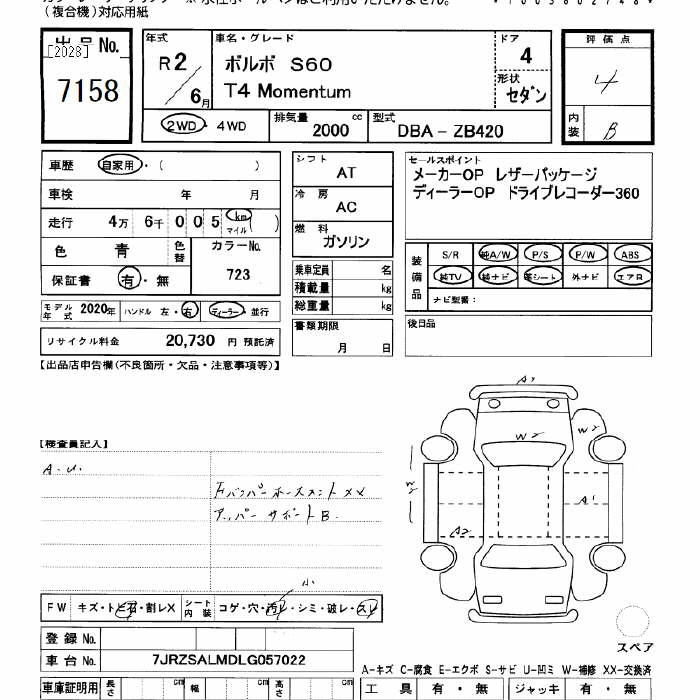 (複合機)対応用紙
出品No.
[2028]
7158
年式
R2/6月
車名・グレード
ボルボ S60
T4 Momentum
ドア
4
形状
セダン
評価点
4
内装
B
2WD・4WD
排気量
2000 cc
型式
DBA - ZB420
車歴 自家用・( )
車検 年 月
走行 4万 6千 0 0 5 km マイル ( )
色 青 色替 カラーNo.
723
保証書 有・無
モデル年式 2020年 ハンドル 左・右 ディーラー・並行
リサイクル料金 20,730 円 預託済
シフト
AT
冷房
AC
燃料
ガソリン
乗車定員 名
積載量 kg
総重量 kg
書類期限
月 日
セールスポイント
メーカーOP レザーパッケージ
ディーラーOP ドライブレコーダー360
装備品
S/R 純A/W P/S P/W ABS
純TV 純ナビ 革シート 外ナビ エアB
ナビ型番：
後日品
【出品店申告欄(不良箇所・欠品・注意事項等)】
【検査員記入】
A.U.
Fバンパーホースメント XX
アッパーサポート B.
A1
W2
W2
W2
A1
A2
小
FW キズ・トビ石・割レX シート内装 コゲ・穴・汚レ・シミ・破レ・スレ
スペア
登録No.
車台No. 7JRZSALMDLG057022
A-キズ C-腐食 E-エクボ S-サビ U-凹ミ W-補修 XX-交換済
車庫証明用 長さ cm 幅 cm 高さ cm
工具 有・無 ジャッキ 有・無